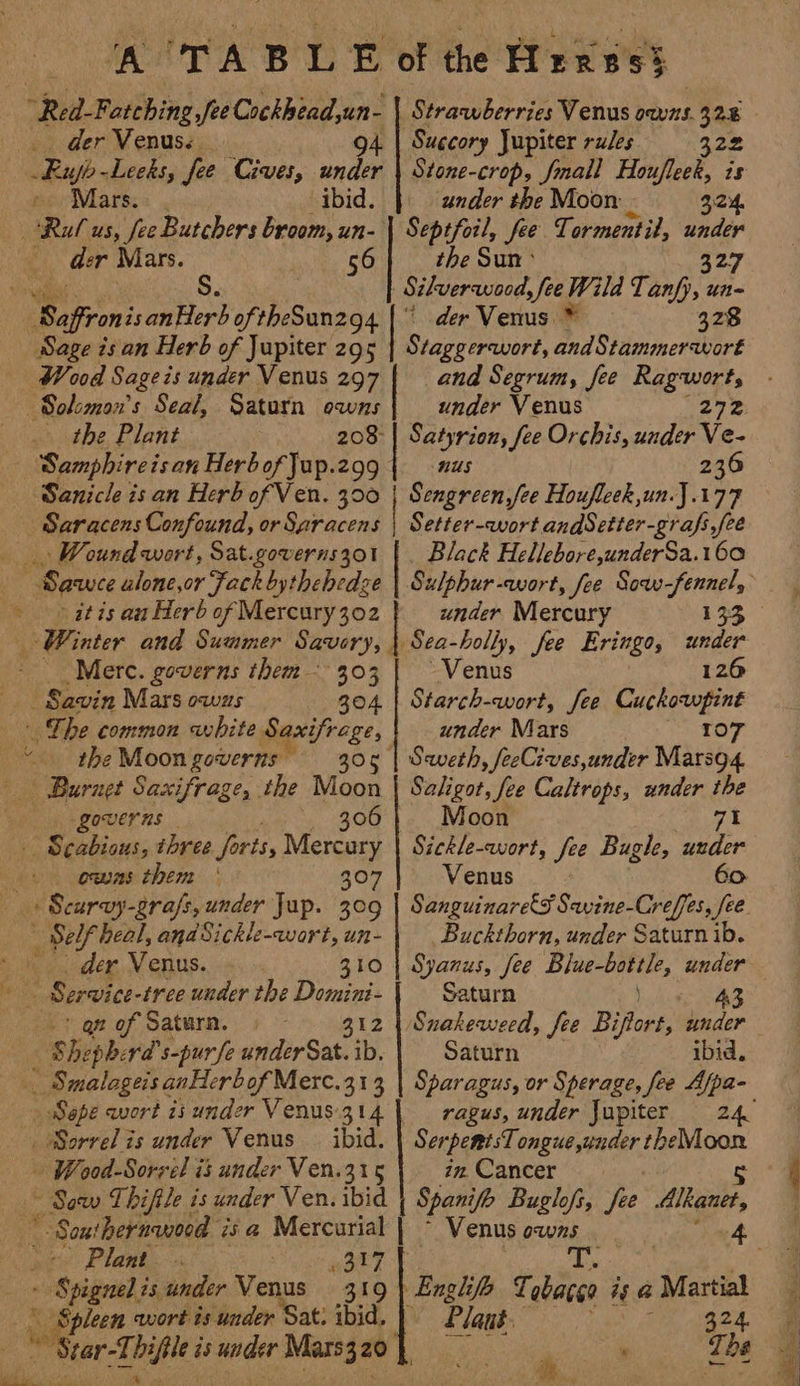 A TABLE of the HERBS;
Red-Fatching, ſee Cockhead, un-
der Venus. 94
Ruſh-Leeks, ſee Cives, under
Mars. ibid.
Ruſcus, ſee Butchers broom, un-
der Mars. 56
S.
Saffron is an Herb of the Sun 294
Sage is an Herb of Jupiter 295
Wood Sage is under Venus 297
Solomon's Seal, Saturn owns
the Plant 208
Samphire is an Herb of Jup. 299
Sanicle is an Herb of Ven. 300
Saracens Confound, or Saracens
Woundwort, Sat. governs 301
Sawce alone, or Jack by the hedge
it is an Herb of Mercury 302
Winter and Summer Savory,
Merc. governs them 303
Savin Mars owns 304
The common white Saxifrage,
the Moon governs 305
Burnet Saxifrage, the Moon
governs 306
Scabious, three ſorts, Mercury
owns them 307
Scurvy-graſs, under Jup. 309
Self heal, and Sickle-wort, un-
der Venus. 310
Service-tree under the Domini-
on of Saturn. 312
Shepherd's-purſe under Sat. ib.
Smalage is an Herb of Merc. 313
Sope wort is under Venus 314
Sorrel is under Venus ibid.
Wood-Sorrel is under Ven. 315
Sow Thiſtle is under Ven. ibid
Southernwood is a Mercurial
Plant 317
Spignel is under Venus 319
Spleen wort is under Sat. ibid.
Star-Thiſtle is under Mars 320
Strawberries Venus owns. 328
Succory Jupiter rules 322
Stone-crop, ſmall Houſleek, is
under the Moon 324
Septfoil, ſee Tormentil, under
the Sun 327
Silverwood, ſee Wild Tanſy, un-
der Venus 328
Staggerwort, and Stammerwort
and Segrum, ſee Ragwort,
under Venus 272
Satyrion, ſee Orchis, under Ve-
nus 236
Sengreen, ſee Houſleek, un. J. 177
Setter-wort and Setter-graſs, ſee
Black Hellebore, under Sa. 160
Sulphur-wort, ſee Sow-fennel,
under Mercury 133
Sea-holly, ſee Eringo, under
Venus 126
Starch-wort, ſee Cuckowpint
under Mars 107
Sweth, ſee Cives, under Mars 94
Saligot, ſee Caltrops, under the
Moon 71
Sickle-wort, ſee Bugle, under
Venus 60
Sanguinar & Swine-Creſſes, ſee
Buckthorn, under Saturn ib.
Syanus, ſee Blue-bottle, under
Saturn 43
Snakeweed, ſee Biſtort, under
Saturn ibid.
Sparagus, or Sperage, ſee Aſpa-
ragus, under Jupiter 24
Serpents Tongue, under the Moon
in Cancer 5
Spaniſh Bugloſs, ſee Alkanet,
Venus owns 4
T.
Engliſh Tobacco is a Martial
Plant. 324
The